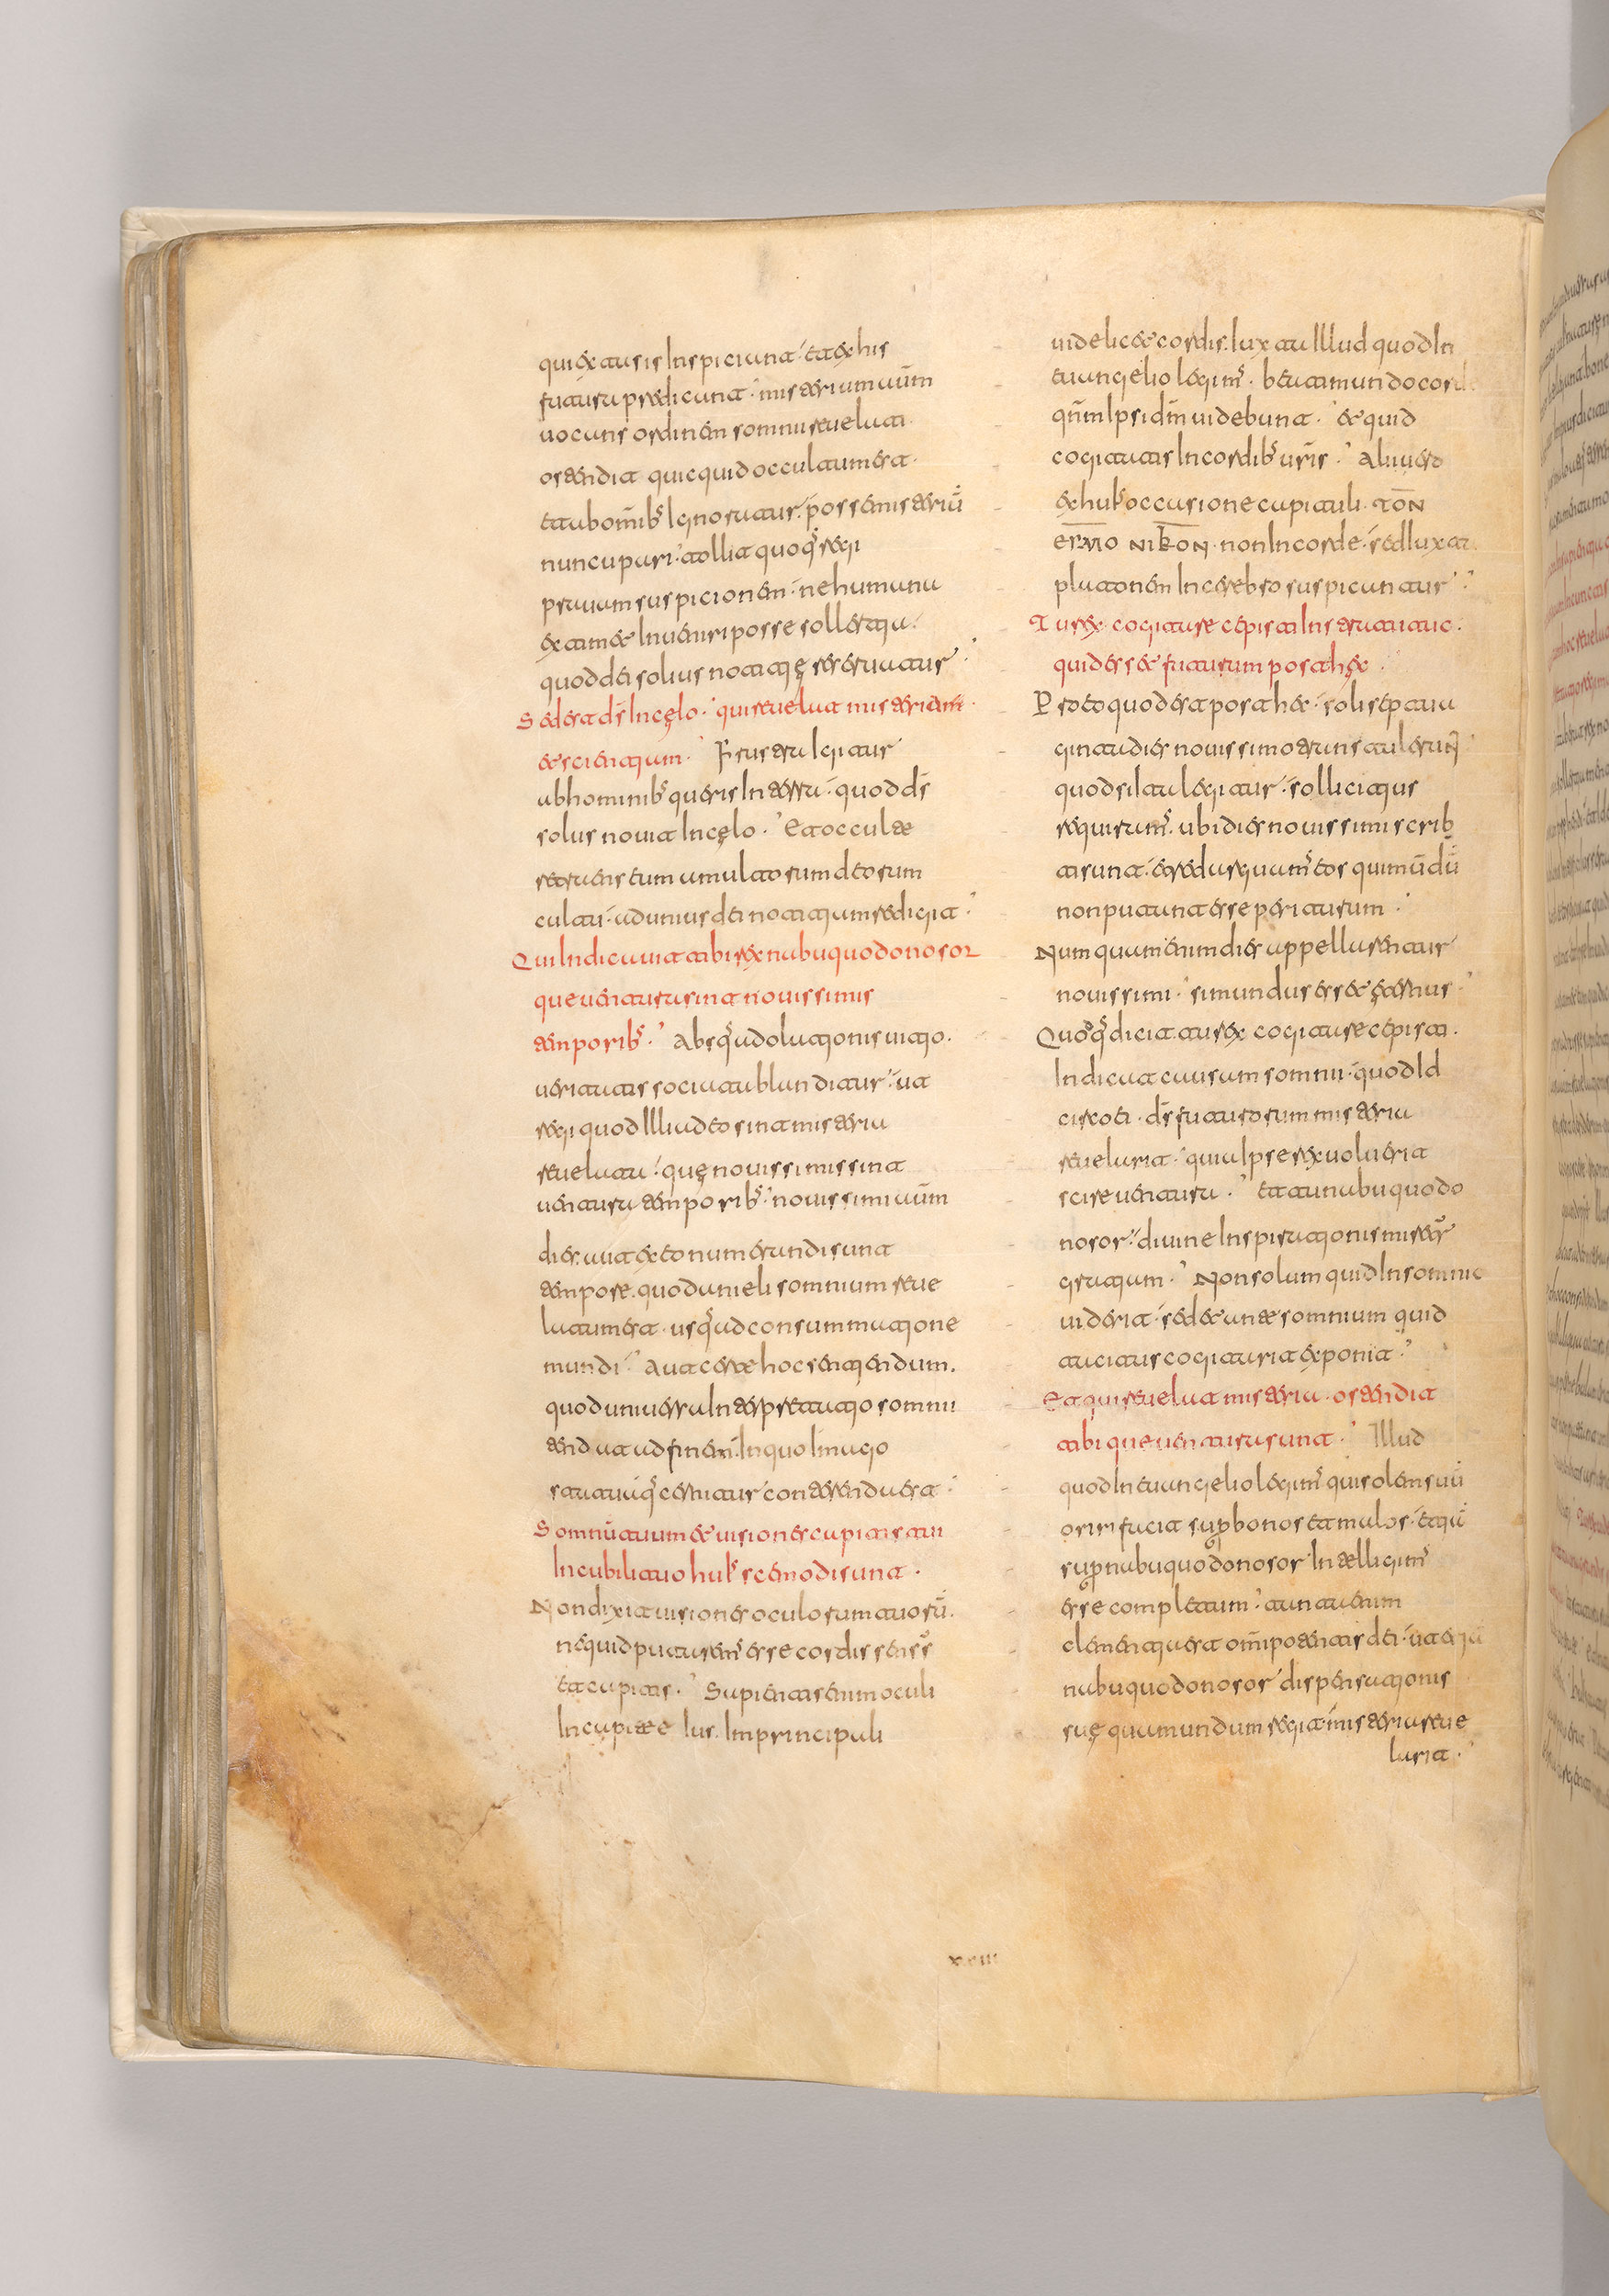 qui extasis Inspiciunt et ex his
futura predicunt misterium uūm
uocans ordinem somnii reuelati
ostendit quicquid occultum erat
et ab omībs Ignoratur possemisteriū
nuncupari tollit quoq; regi
prauam suspicionem ne humana
extimet Inueniri posse sollertia
quod dei solius notitię seseruatur
Sed est d̄s Incęlo qui reuelat misteriam
et scientium Frustra Igitur
ab hominibs queris In terra quod d̄s
solus nouit Incęlo Et occulte
retraens eum a multorum deorum
cultu ad unius dei notitium redigit
Qui Indicauit tibi rex nabuquodonosor
que uentura sint nouissimis
temporibs Absq; adolationis uitio
ueritatis sociat ablanditur ut
regi quod Illi ad eo sint misteria
reuelata quę nouissimis sint
uentura temporibs nouissimi aūm
dies aut ex eo numerandi sunt
tempore quo danieli somnium reue
latum est usq; ad consummatione
mundi Aut certe hoc sentiendum
quod uniuersa Interpretatio somnii
tendat ad finem Inquo Imago
statuāq; cernitur conterenda est
Somnū tuum et uisiones capitis tui
In cubili tuo huius cemodi sunt
Non dixit uisiones oculorum tuorū
ne quid putaremus esse cordis sensus
et capitis Sapientis enim oculi
In capite Ius Imprincipali
uidelicet cordis Iuxta Illud quod In
euangelio legims bēati mundo corde
qm̄ Ipsi dm̄ uidebunt et quid
cogitatis In cordibs uris Alii uero
ex huius occasione capituli ΤΟΝ
εΓΜΟΝΙΚΟΝ non In corde sed Iuxta
platonem In cerebro suspicantur
Tu rex cogitare cepisti In stratu tuo
quid esset futurum post hęc
Pro eo quod est post hęc soli septua
ginta dies nouissimo transtulerunt
quod si Ita legitur sollicitius
requiramus ubi dies nouissimi scrib
ti sunt et redarguamus eos qui mūdū
non putant esse periturum
Numquam enim dies appellarentur
nouissimi si mundus esset ęternus
Quodq; dicit tu rex cogitare cepisti
Indicat causam somnii quod Id
circo ei d̄s futurorum misteria
reuelarit quia Ipse rex uoluerit
scire uentura Et aut nabuquodo
nosor diuine Inspirationis miretur
gratium Non solum quid In somnio
uiderit sed et ante somnium quid
tacitus cogitarit exponit
Et qui reuelat misteria ostendit
tibi que uentura sunt Illud
quod In euangelio legims qui solem suū
oriri facit sup bonos et malos etiā
sup nabuquodonosor Intelligims
esse completum tanta enim
clementia est omīpotentis dei ut etiā
nabuquodonosor dispensationis
suę qua mundum regit misteria reue
larit
xviii